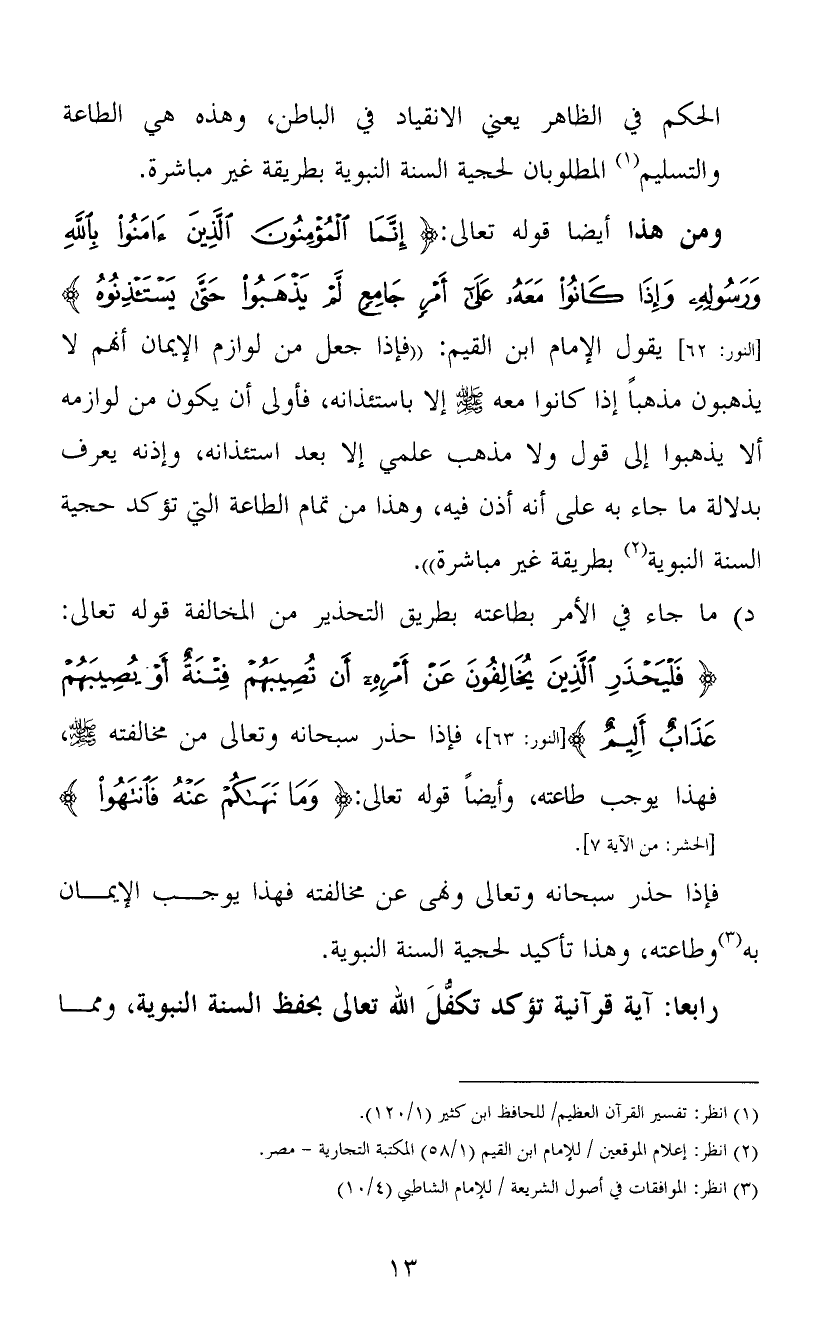 الحكم في الظاهر يعني الانقياد في الباطن، وهذه هي الطاعة
والتسليم(١) المطلوبان لحجية السنة النبوية بطريقة غير مباشرة.
ومن هذا أيضا قوله تعالى:﴿ إِنَّمَا ٱلْمُؤْمِنُونَ ٱلَّذِينَ ءَامَنُوا۟ بِٱللَّهِ
وَرَسُولِهِۦ وَإِذَا كَانُوا۟ مَعَهُۥ عَلَىٰٓ أَمْرٍ جَامِعٍ لَّمْ يَذْهَبُوا۟ حَتَّىٰ يَسْتَـْٔذِنُوهُ ﴾
[النور: ٦٢] يقول الإمام ابن القيم: ((فإذا جعل من لوازم الإيمان أنهم لا
يذهبون مذهباً إذا كانوا معه ﷺ إلا باستئذانه، فأولى أن يكون من لوازمه
ألا يذهبوا إلى قول ولا مذهب علمي إلا بعد استئذانه، وإذنه يعرف
بدلالة ما جاء به على أنه أذن فيه، وهذا من تمام الطاعة التي تؤكد حجية
السنة النبوية(٢) بطريقة غير مباشرة)).
د) ما جاء في الأمر بطاعته بطريق التحذير من المخالفة قوله تعالى:
﴿ فَلْيَحْذَرِ ٱلَّذِينَ يُخَالِفُونَ عَنْ أَمْرِهِۦٓ أَن تُصِيبَهُمْ فِتْنَةٌ أَوْ يُصِيبَهُمْ
عَذَابٌ أَلِيمٌ ﴾[النور: ٦٣]، فإذا حذر سبحانه وتعالى من مخالفته ﷺ،
فهذا يوجب طاعته، وأيضاً قوله تعالى:﴿ وَمَا نَهَىٰكُمْ عَنْهُ فَٱنتَهُوا۟ ﴾
[الحشر: من الآية ٧].
فإذا حذر سبحانه وتعالى ونهى عن مخالفته فهذا يوجـــب الإيمـــان
به(٣)وطاعته، وهذا تأكيد لحجية السنة النبوية.
رابعا: آية قرآنية تؤكد تكفُّلَ الله تعالى بحفظ السنة النبوية، وممـــا
(١) انظر: تفسير القرآن العظيم/ للحافظ ابن كثير (١٢٠/١).
(٢) انظر: إعلام الموقعين / للإمام ابن القيم (٥٨/١) المكتبة التجارية – مصر.
(٣) انظر: الموافقات في أصول الشريعة / للإمام الشاطبي (١٠/٤)
١٣